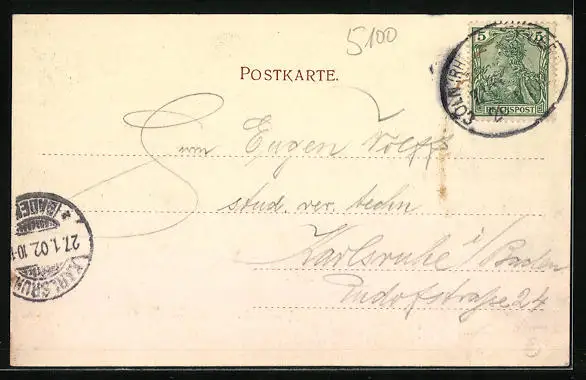 5100
5 5
REICHSPOST
CÖLN (RH
POSTKARTE.
Herrn Eugen Wolff
stud. rer. techn
Karlsruhe i/Baden
Rudolfstraße 24
KARLSRUHE
27.1.02.10-1
(BADEN)